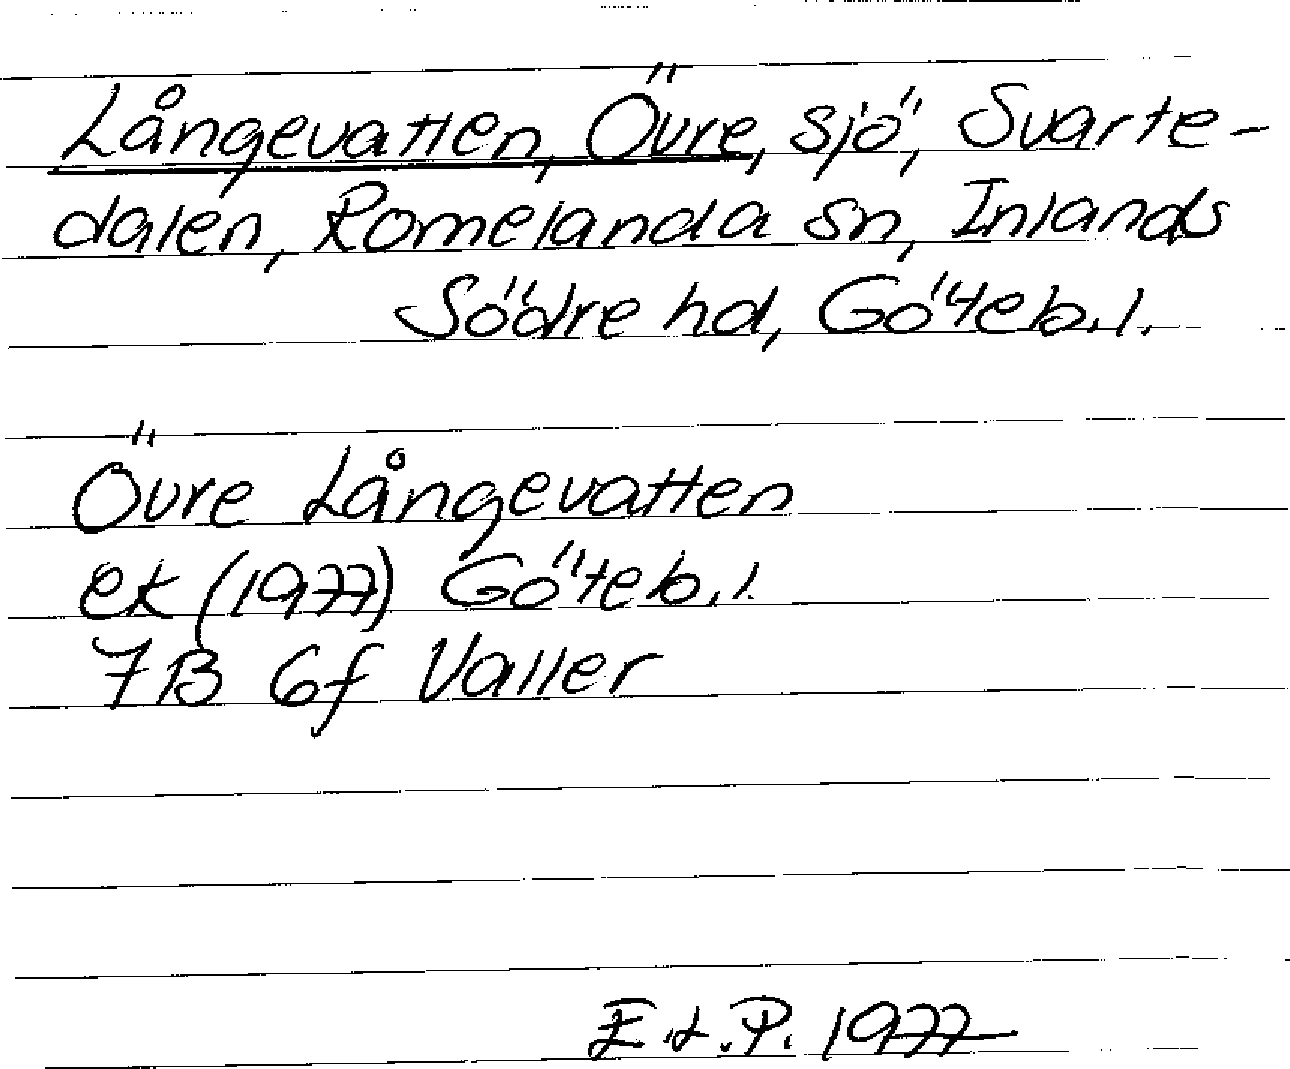 Långevatten, Övre, sjö, Svarte-
dalen, Romelanda sn, Inlands
Södre hd, Göteb.l.
Övre Långevatten
ek (1977) Göteb.l.
7B 6f Valler
E.L.P. 1977